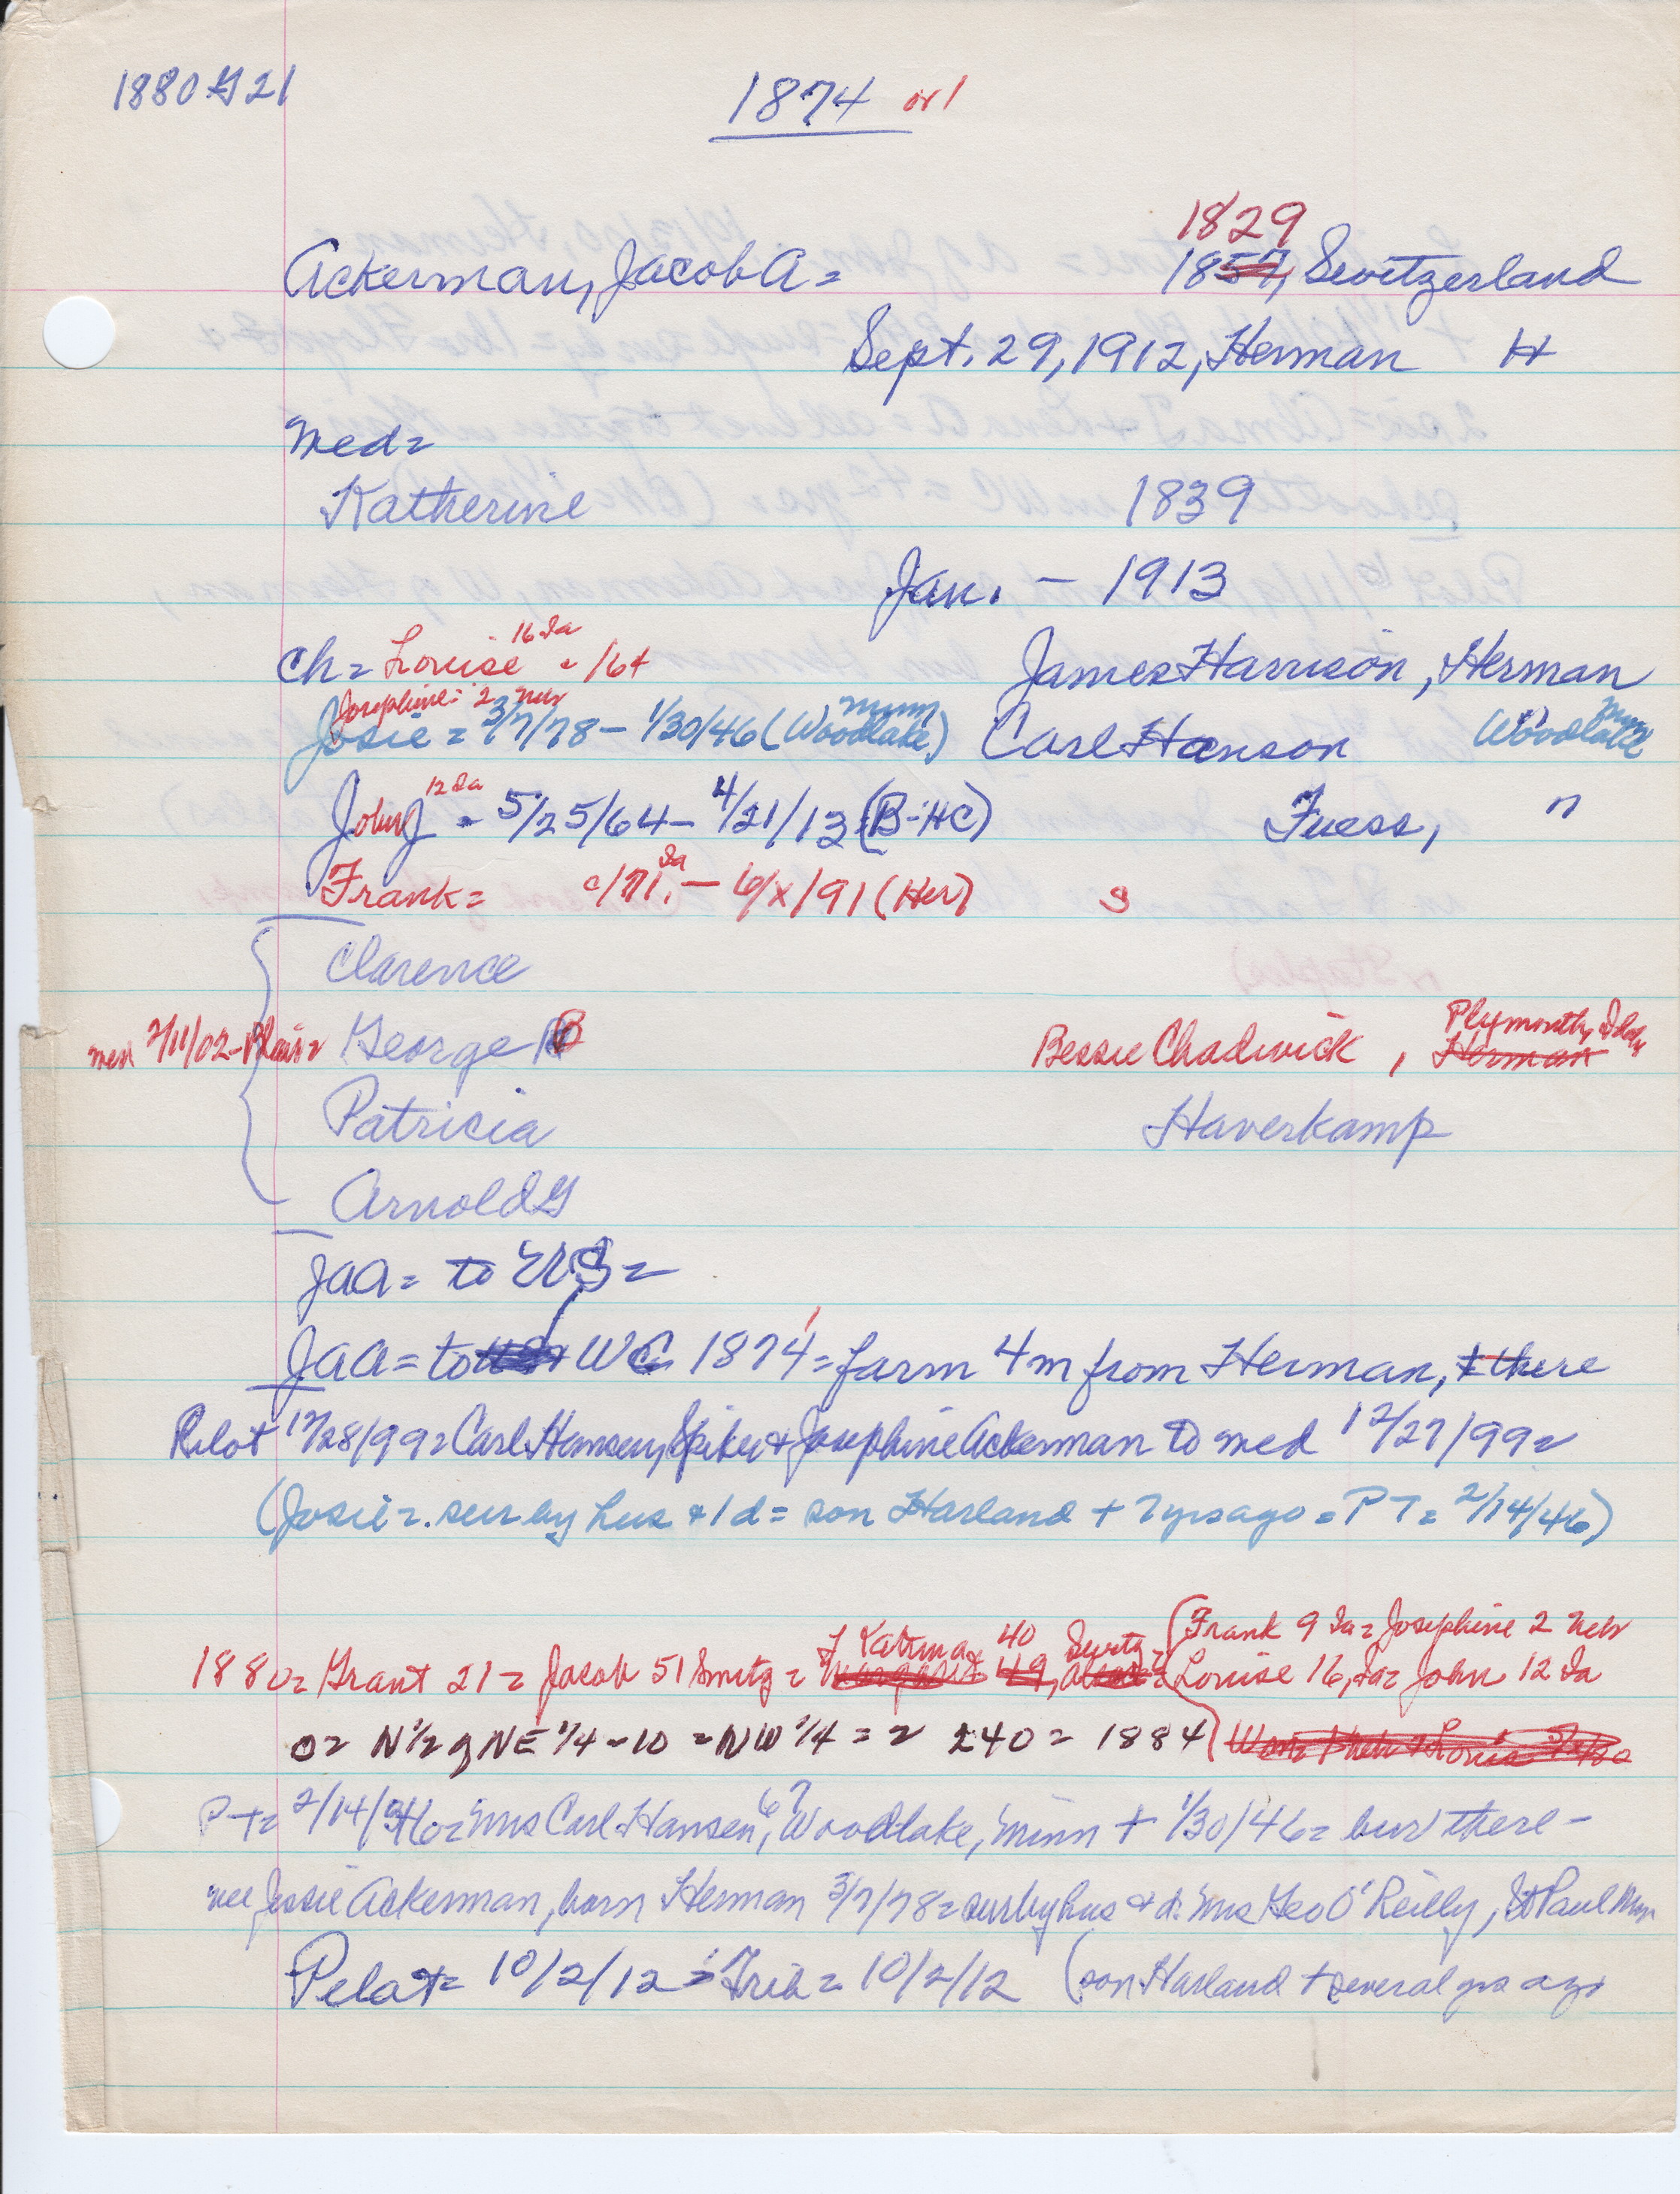 1880 G 21
1874 or 1
1829
Ackerman, Jacob A = 1857, Switzerland
Sept. 29, 1912, Herman H
med =
Katherine 1839
Jan. - 1913
16 Ia
Ch = Louise = 16+ James Harrison, Herman
Josephine = 2 Neb
Josie = 3/7/78 - 1/30/46 (Woodlake) Minn Carl Hanson Woodlake Minn
12 Ia
John J = 5/25/64 - 4/21/13 (B-HC) Fuess, "
Frank = c/71, Ia - 6/x/91 (Her) S
Clarence
med 2/11/02 - Blair = George B Bessie Chadwick, Herman Plymouth,
Patricia Haverkamp
Arnold G
JAA = to US =
JAA = to WC 1874 1 = farm 4m from Herman, + there
Pilot 12/28/99 = Carl Hansen, Spiker + Josephine Ackerman to med 12/27/99 =
(Josie = sur by hus + 1 d = son Harland + 7 yrs ago = PT = 2/14/46)
Katrina 40 Switz (Frank 9 Ia = Josephine 2 Neb
1880 = Grant 21 = Jacob 51 Switz = 49, Louise 16, Ia = John 12 Ia
O = N 1/2 of NE 1/4 - 10 = NW 1/4 = 240 = 1884
PT = 2/14/46 = Mrs Carl Hansen, 67, Woodlake, Minn + 1/30/46 = bur there -
nee Jossie Ackerman, born Herman 3/7/78 = sur by hus + d. Mrs Geo O'Reilly, St Paul Minn
Pilot = 10/2/12 = Trib = 10/2/12 (son Harland + several yrs ago